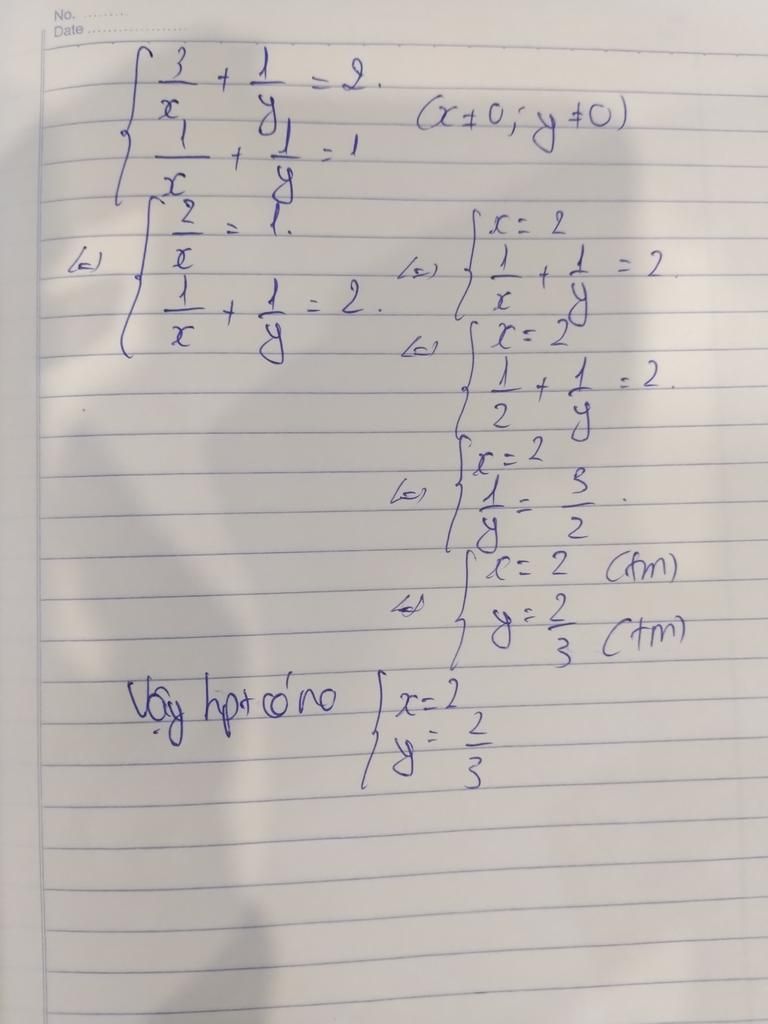 No. ........
Date ....................
{ 3/x + 1/y = 2.
(x ≠ 0; y ≠ 0)
1/x + 1/y = 1
<=> { 2/x = 1.
1/x + 1/y = 2.
<=> { x = 2
1/x + 1/y = 2.
<=> { x = 2
1/2 + 1/y = 2.
<=> { x = 2
1/y = 3/2.
<=> { x = 2 (tm)
y = 2/3 (tm)
Vậy hpt có no { x = 2
y = 2/3